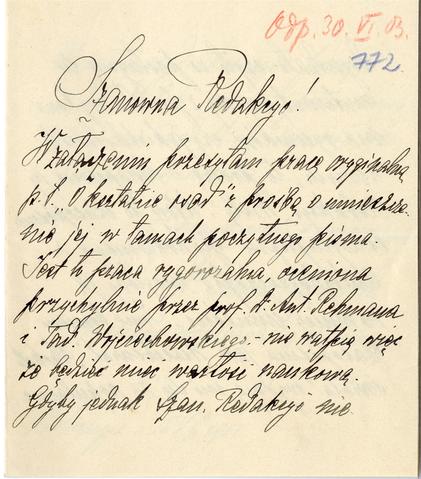 Odp. 30. VI. 03.
772.
Szanowna Redakcyo!
W załączeniu przesyłam pracę oryginalną
p. t. „O kształcie osad" z prośbą o umieszcze-
nie jej w łamach poczytnego pisma.
Jest to praca rygorozalna, oceniona
przychylnie przez prof. Dr. Ant. Rehmana
i Tad. Wojciechowskiego - nie wątpię więc
że będzie mieć wartość naukową.
Gdyby jednak Szan. Redakcyo nie